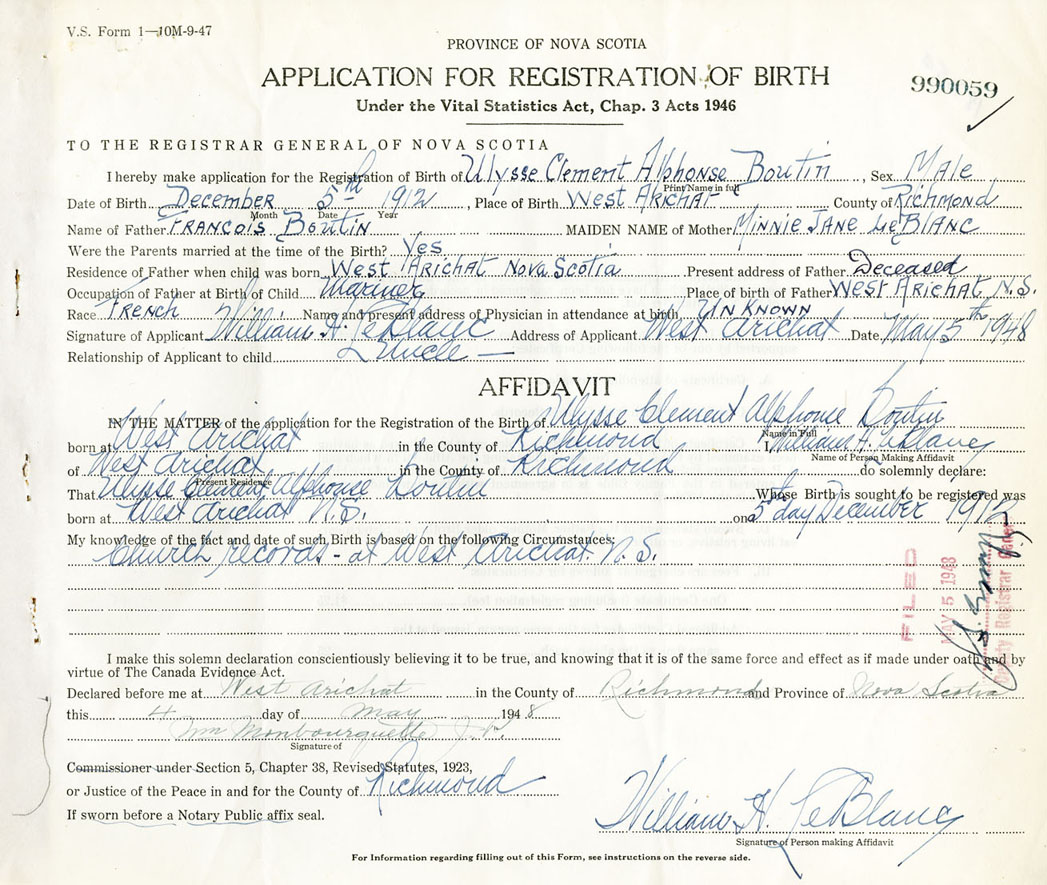 V.S. Form 1—10M-9-47
PROVINCE OF NOVA SCOTIA
APPLICATION FOR REGISTRATION OF BIRTH
990059
Under the Vital Statistics Act, Chap. 3 Acts 1946
TO THE REGISTRAR GENERAL OF NOVA SCOTIA
I hereby make application for the Registration of Birth of Ulysse Clement Alphonse Boutin, Sex Male
Print Name in full
Date of Birth December 5 1912, Place of Birth West Arichat County of Richmond
Month Date Year
Name of Father Francois Boutin MAIDEN NAME of Mother Minnie Jane LeBlanc
Were the Parents married at the time of the Birth? Yes
Residence of Father when child was born West Arichat Nova Scotia Present address of Father Deceased
Occupation of Father at Birth of Child Mariner Place of birth of Father West Arichat N.S.
Race French Name and present address of Physician in attendance at birth Unknown
Signature of Applicant William H. LeBlanc Address of Applicant West Arichat Date May 5th 1948
Relationship of Applicant to child Uncle —
AFFIDAVIT
IN THE MATTER of the application for the Registration of the Birth of Ulysse Clement Alphonse Boutin
Name in Full
born at West Arichat in the County of Richmond I, William H. LeBlanc
Name of Person Making Affidavit
of West Arichat in the County of Richmond do solemnly declare:
Present Residence
That Ulysse Clement Alphonse Boutin Whose Birth is sought to be registered was
born at West Arichat N.S. on 5 day December 1912
My knowledge of the fact and date of such Birth is based on the following Circumstances:
Church records - at West Arichat. N.S.
FILED
MAY 5 1948
Deputy Registrar
I make this solemn declaration conscientiously believing it to be true, and knowing that it is of the same force and effect as if made under oath and by
virtue of The Canada Evidence Act.
Declared before me at West Arichat in the County of Richmond and Province of Nova Scotia
this 4 day of May 1948
Wm Monbourquette J.P.
Signature of
Commissioner under Section 5, Chapter 38, Revised Statutes, 1923,
or Justice of the Peace in and for the County of Richmond
If sworn before a Notary Public affix seal.
William H. LeBlanc
Signature of Person making Affidavit
For Information regarding filling out of this Form, see instructions on the reverse side.